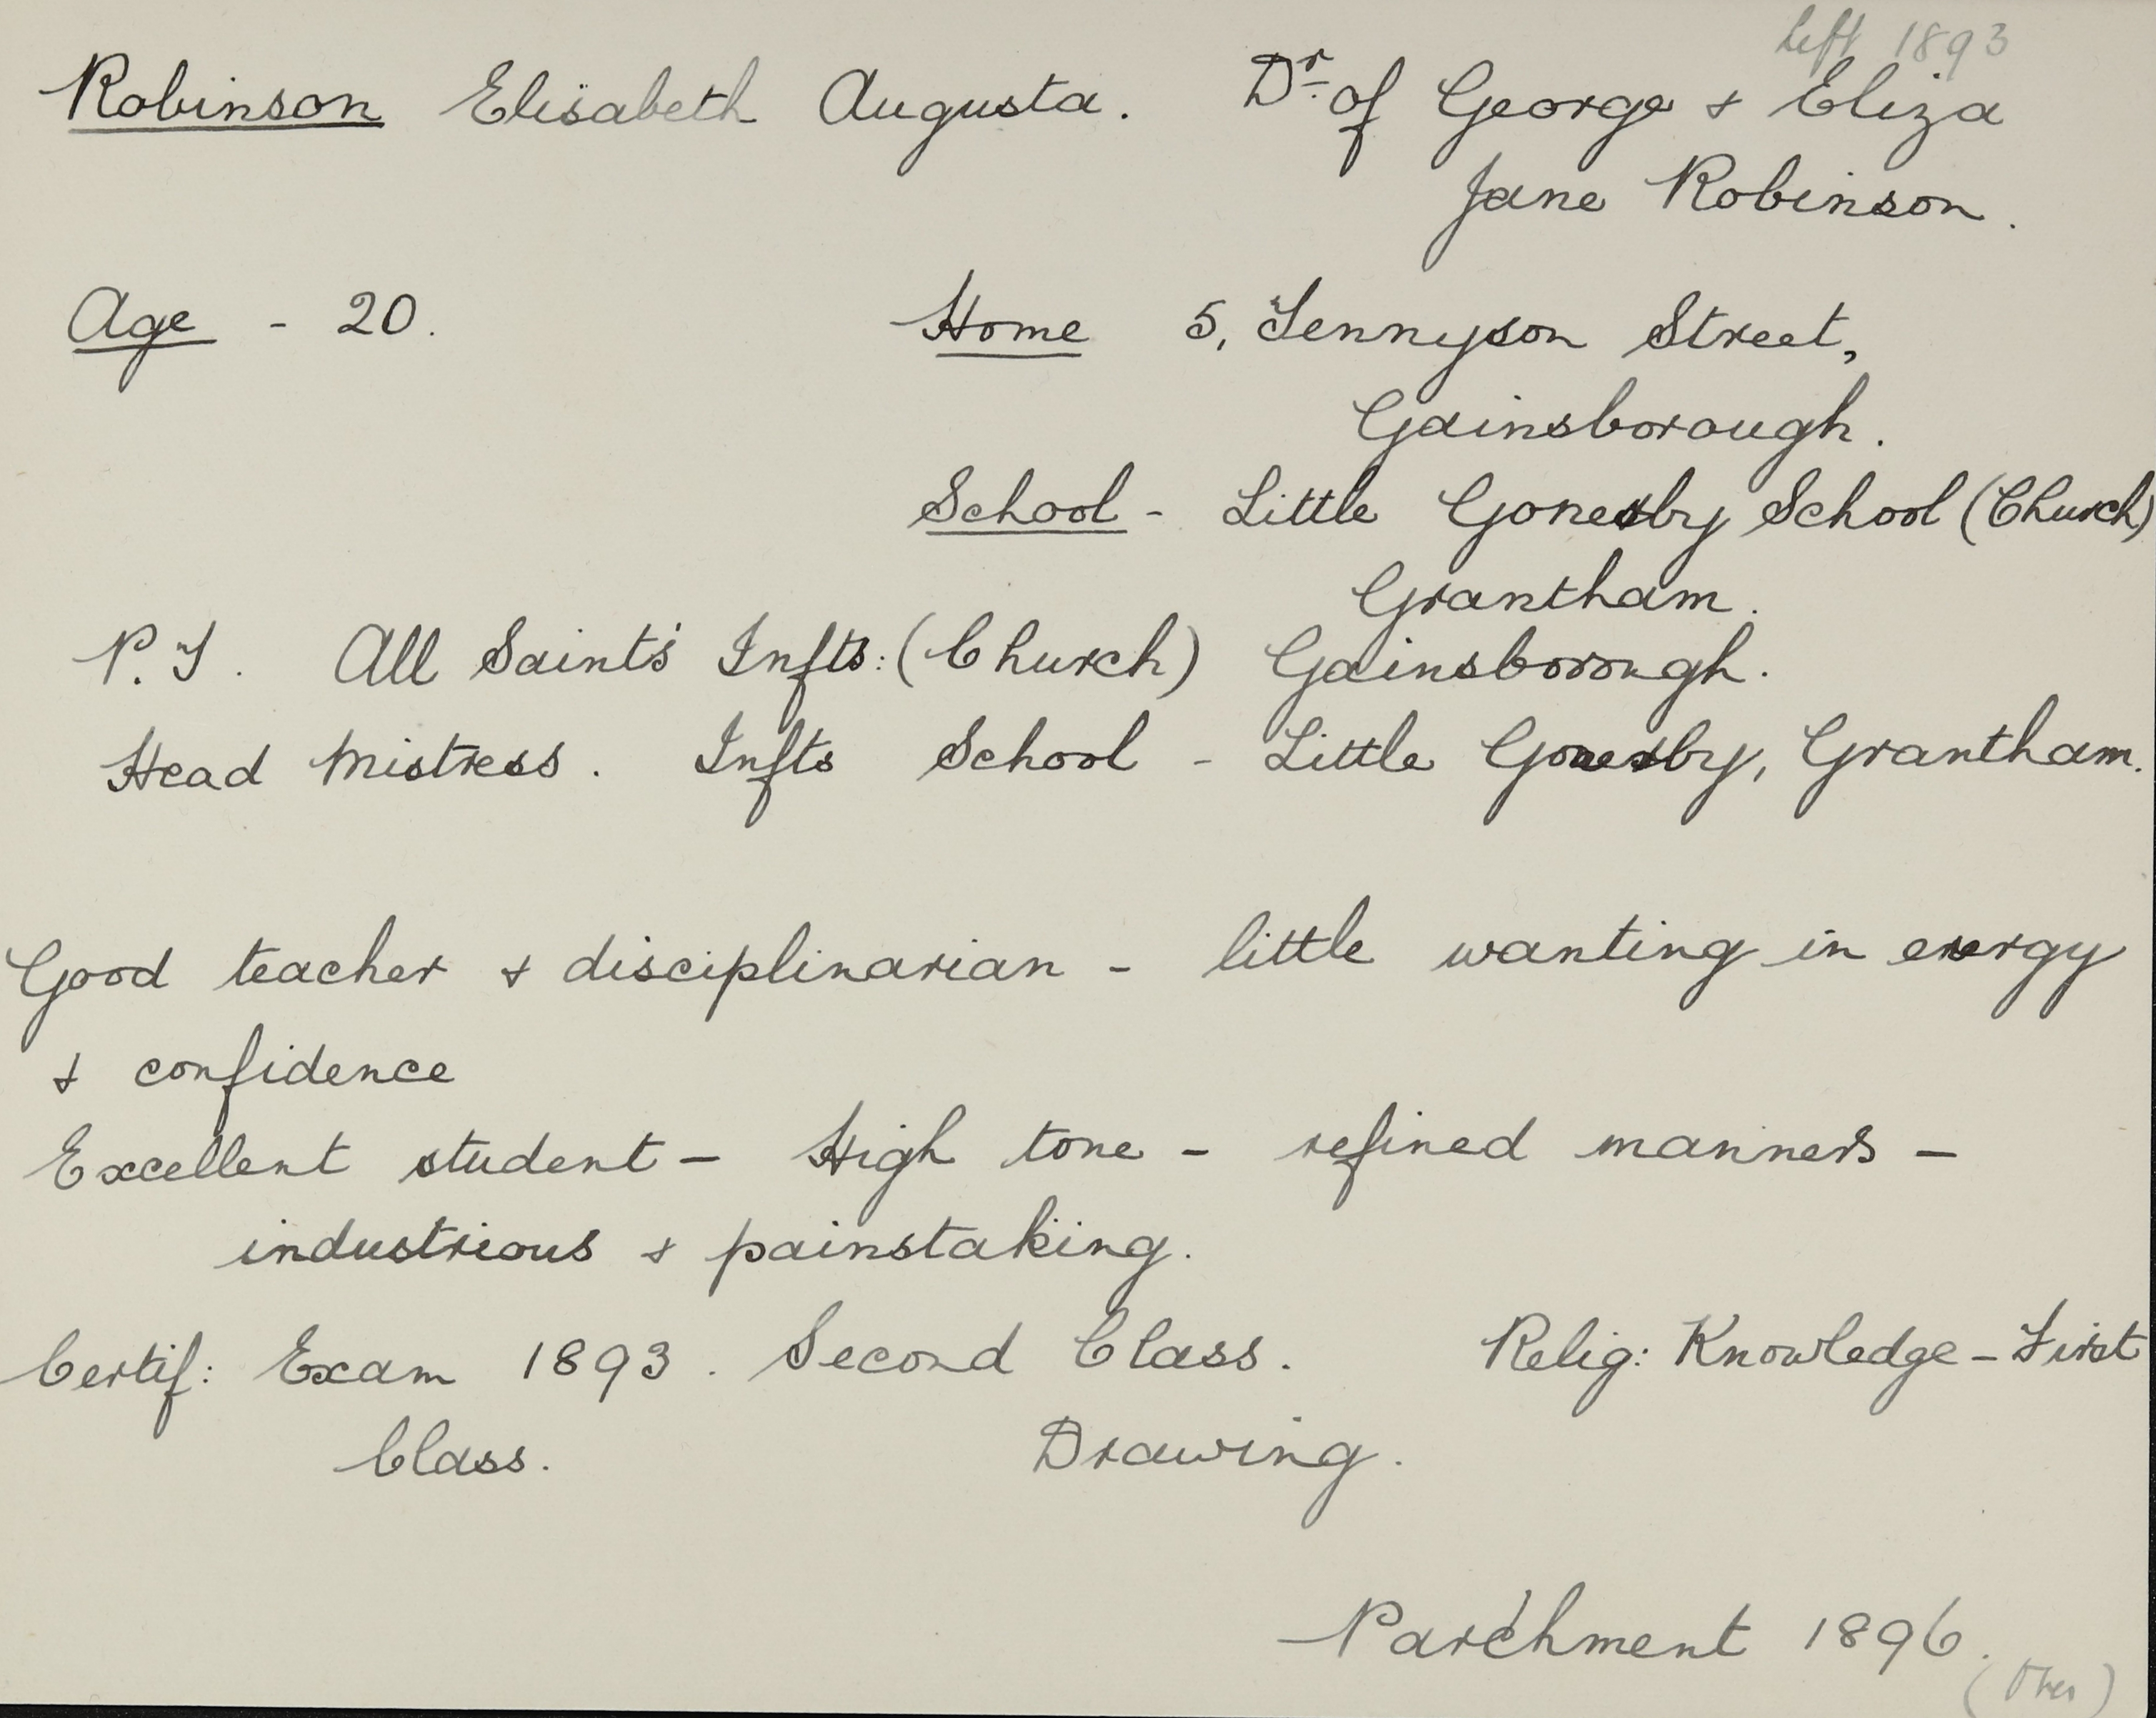 left 1893
Robinson Elisabeth Augusta. Dr. of George & Eliza
Jane Robinson.
Age - 20. Home 5, Tennyson Street,
Gainsborough.
School - Little Gonesby School (Church)
Grantham.
P.T. All Saint's Infts: (Church) Gainsborough.
Head Mistress. Infts School - Little Gonesby, Grantham.
Good teacher & disciplinarian - little wanting in energy
& confidence
Excellent student - High tone - refined manners -
industrious & painstaking.
Certif: Exam 1893. Second Class. Relig: Knowledge - First
Class. Drawing.
Parchment 1896.
(Over)